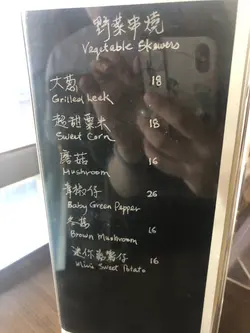 野菜串燒
Vegetable Skewers
大葱 18
Grilled Leek
超甜粟米 18
Sweet Corn
蘑菇 16
Mushroom
青椒仔 26
Baby Green Pepper
冬菇 16
Brown Mushroom
迷你番薯仔 16
Mini Sweet Potato